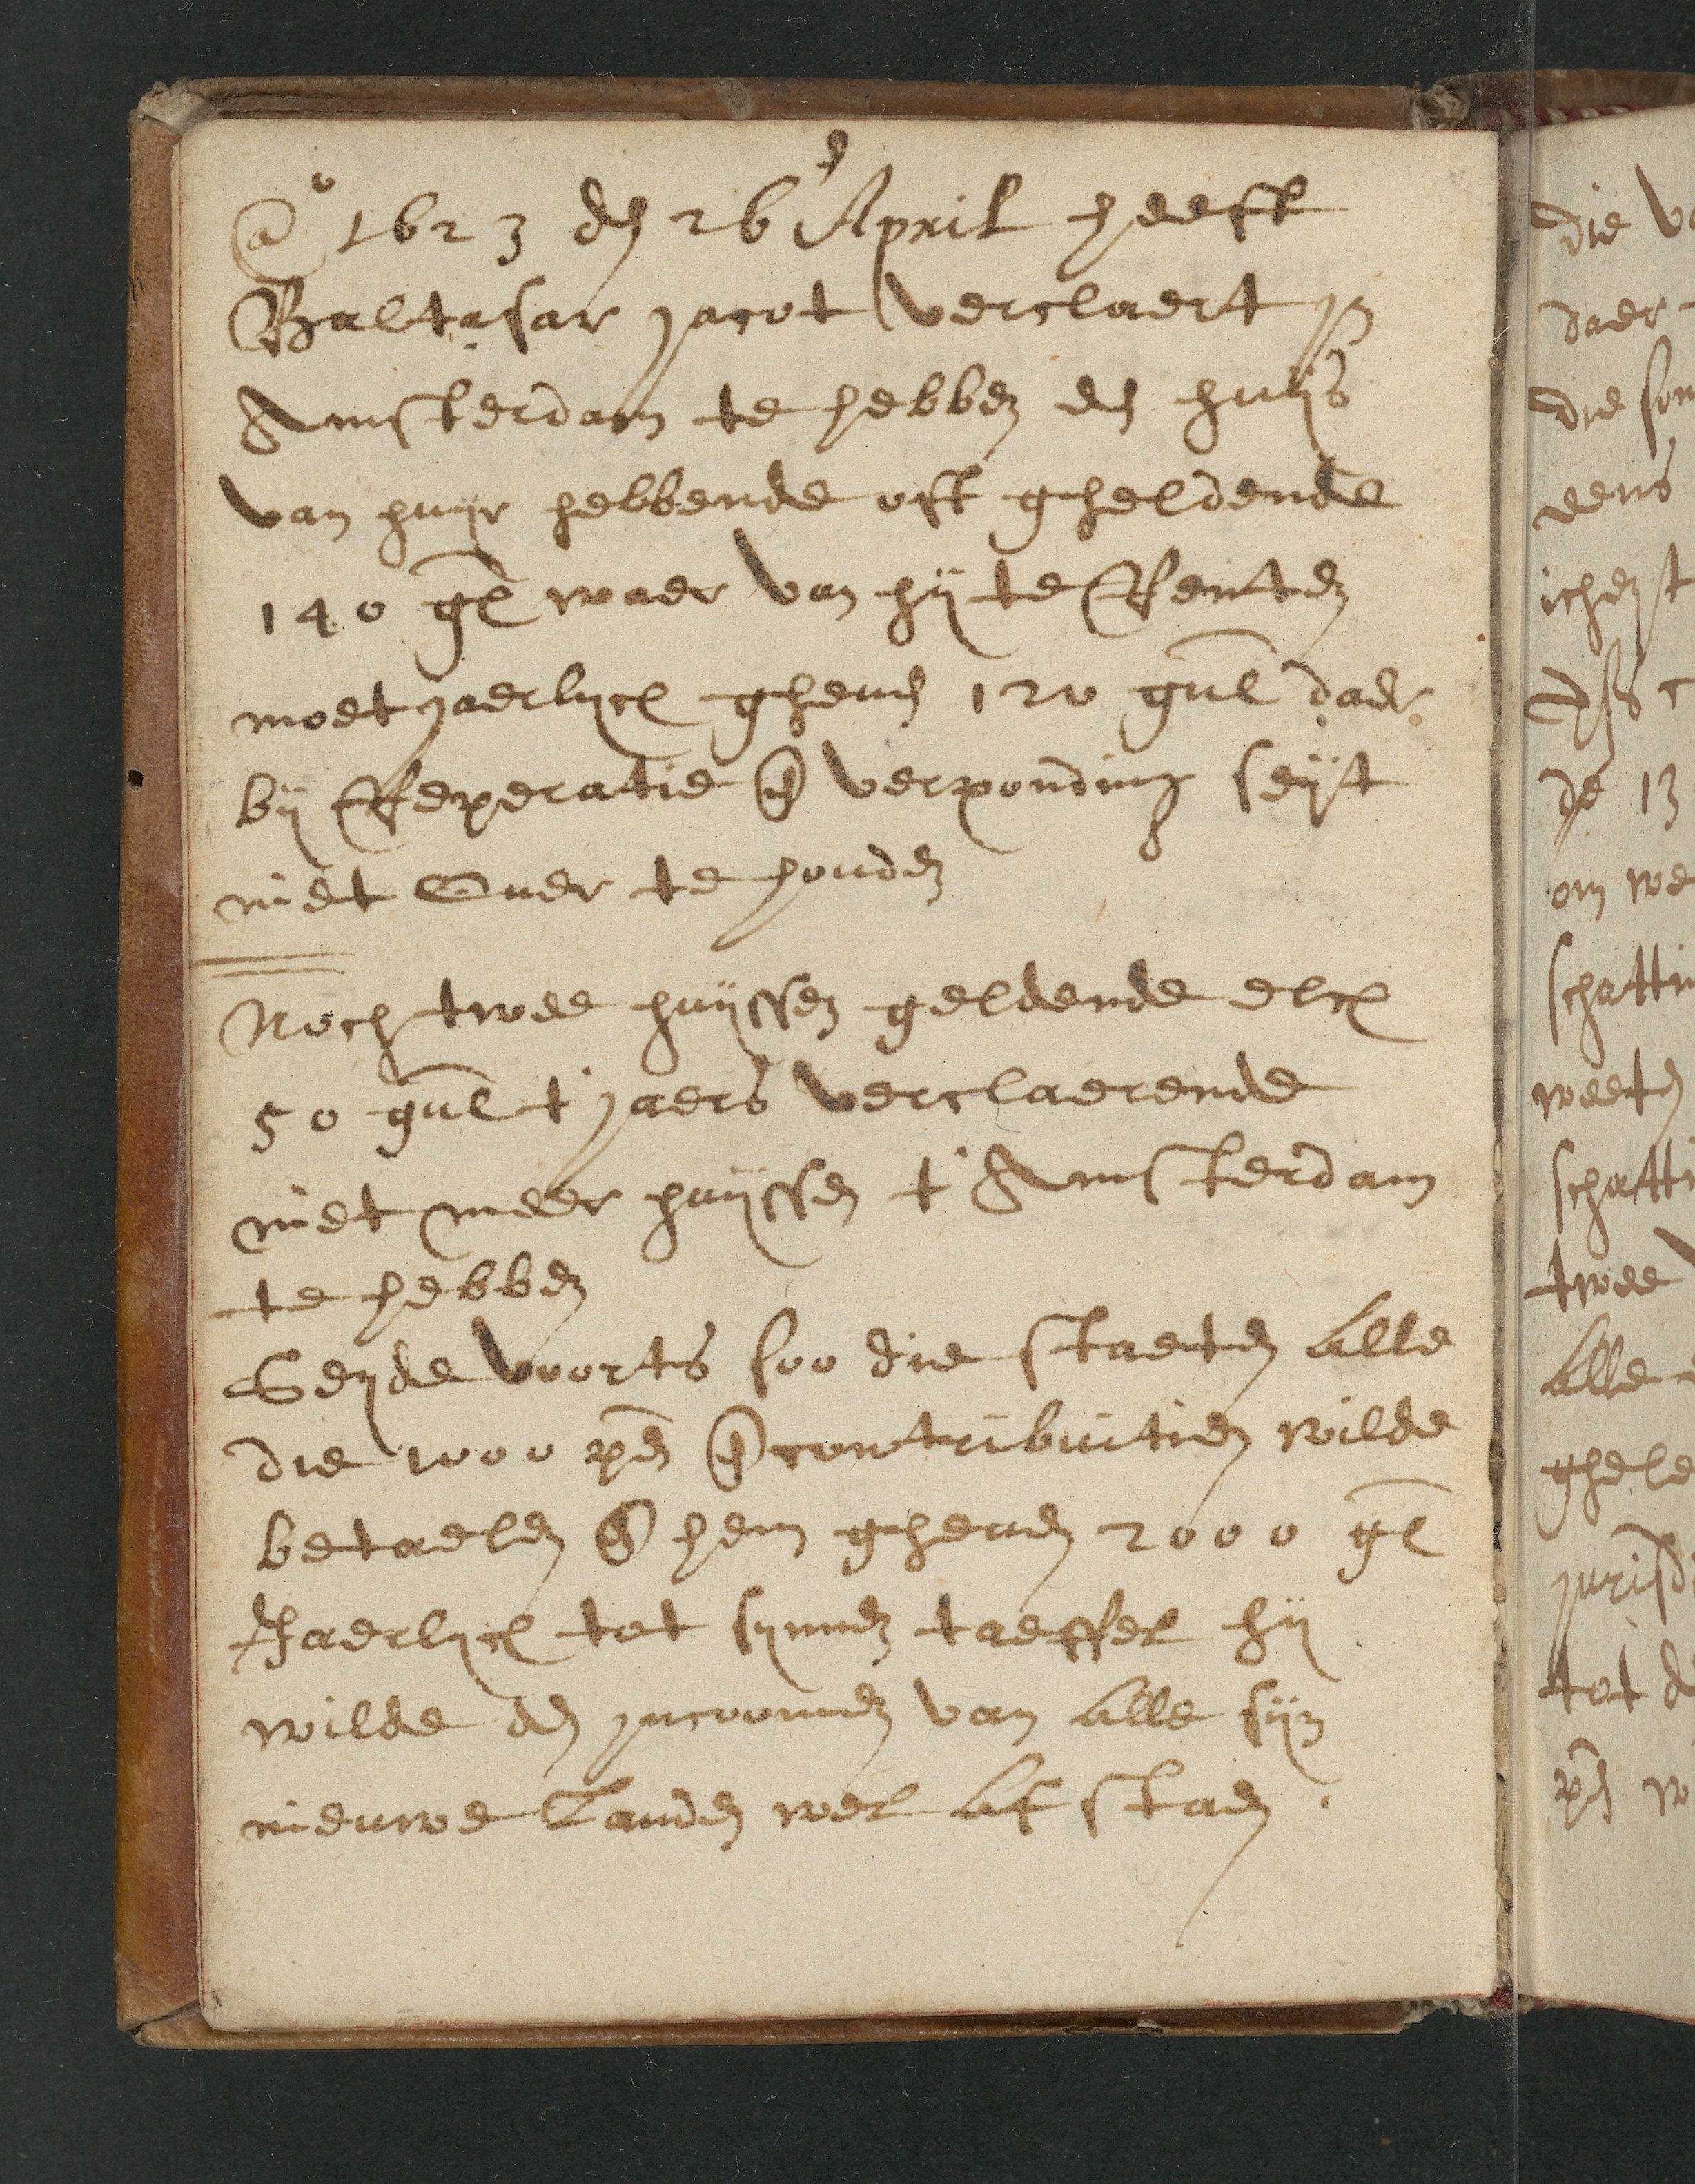 a° 1623 den 26 April heeft
Baltasar Jacot verclaert in
Amsterdam te hebben een huijs
van huijr hebbende oft gheldende
140 gl waer van hij te Renten
moet jaerlijcx gheuen 120 gul daer
bij Reperatie en verponding seijt
niet Ouer te houden
Noch twee huijssen geldende elcx
50 gul t' jaers verclaerende
niet meer huijssen t' Amsterdam
te hebben
Seyde voorts soo die staeten alle
die 1000 pen en contributien wilde
betaelen en hem gheuen 2000 gl
Jaerlijcx tot synnen taeffel hij
wilde den jncoomen van alle sijn
nieuwe Landen wel af staen.
die
daer
die
eens
ichen
de 13
om we
schatti
weeten
schatti
twee
alle
ghele
jurisd
tot d
pen w